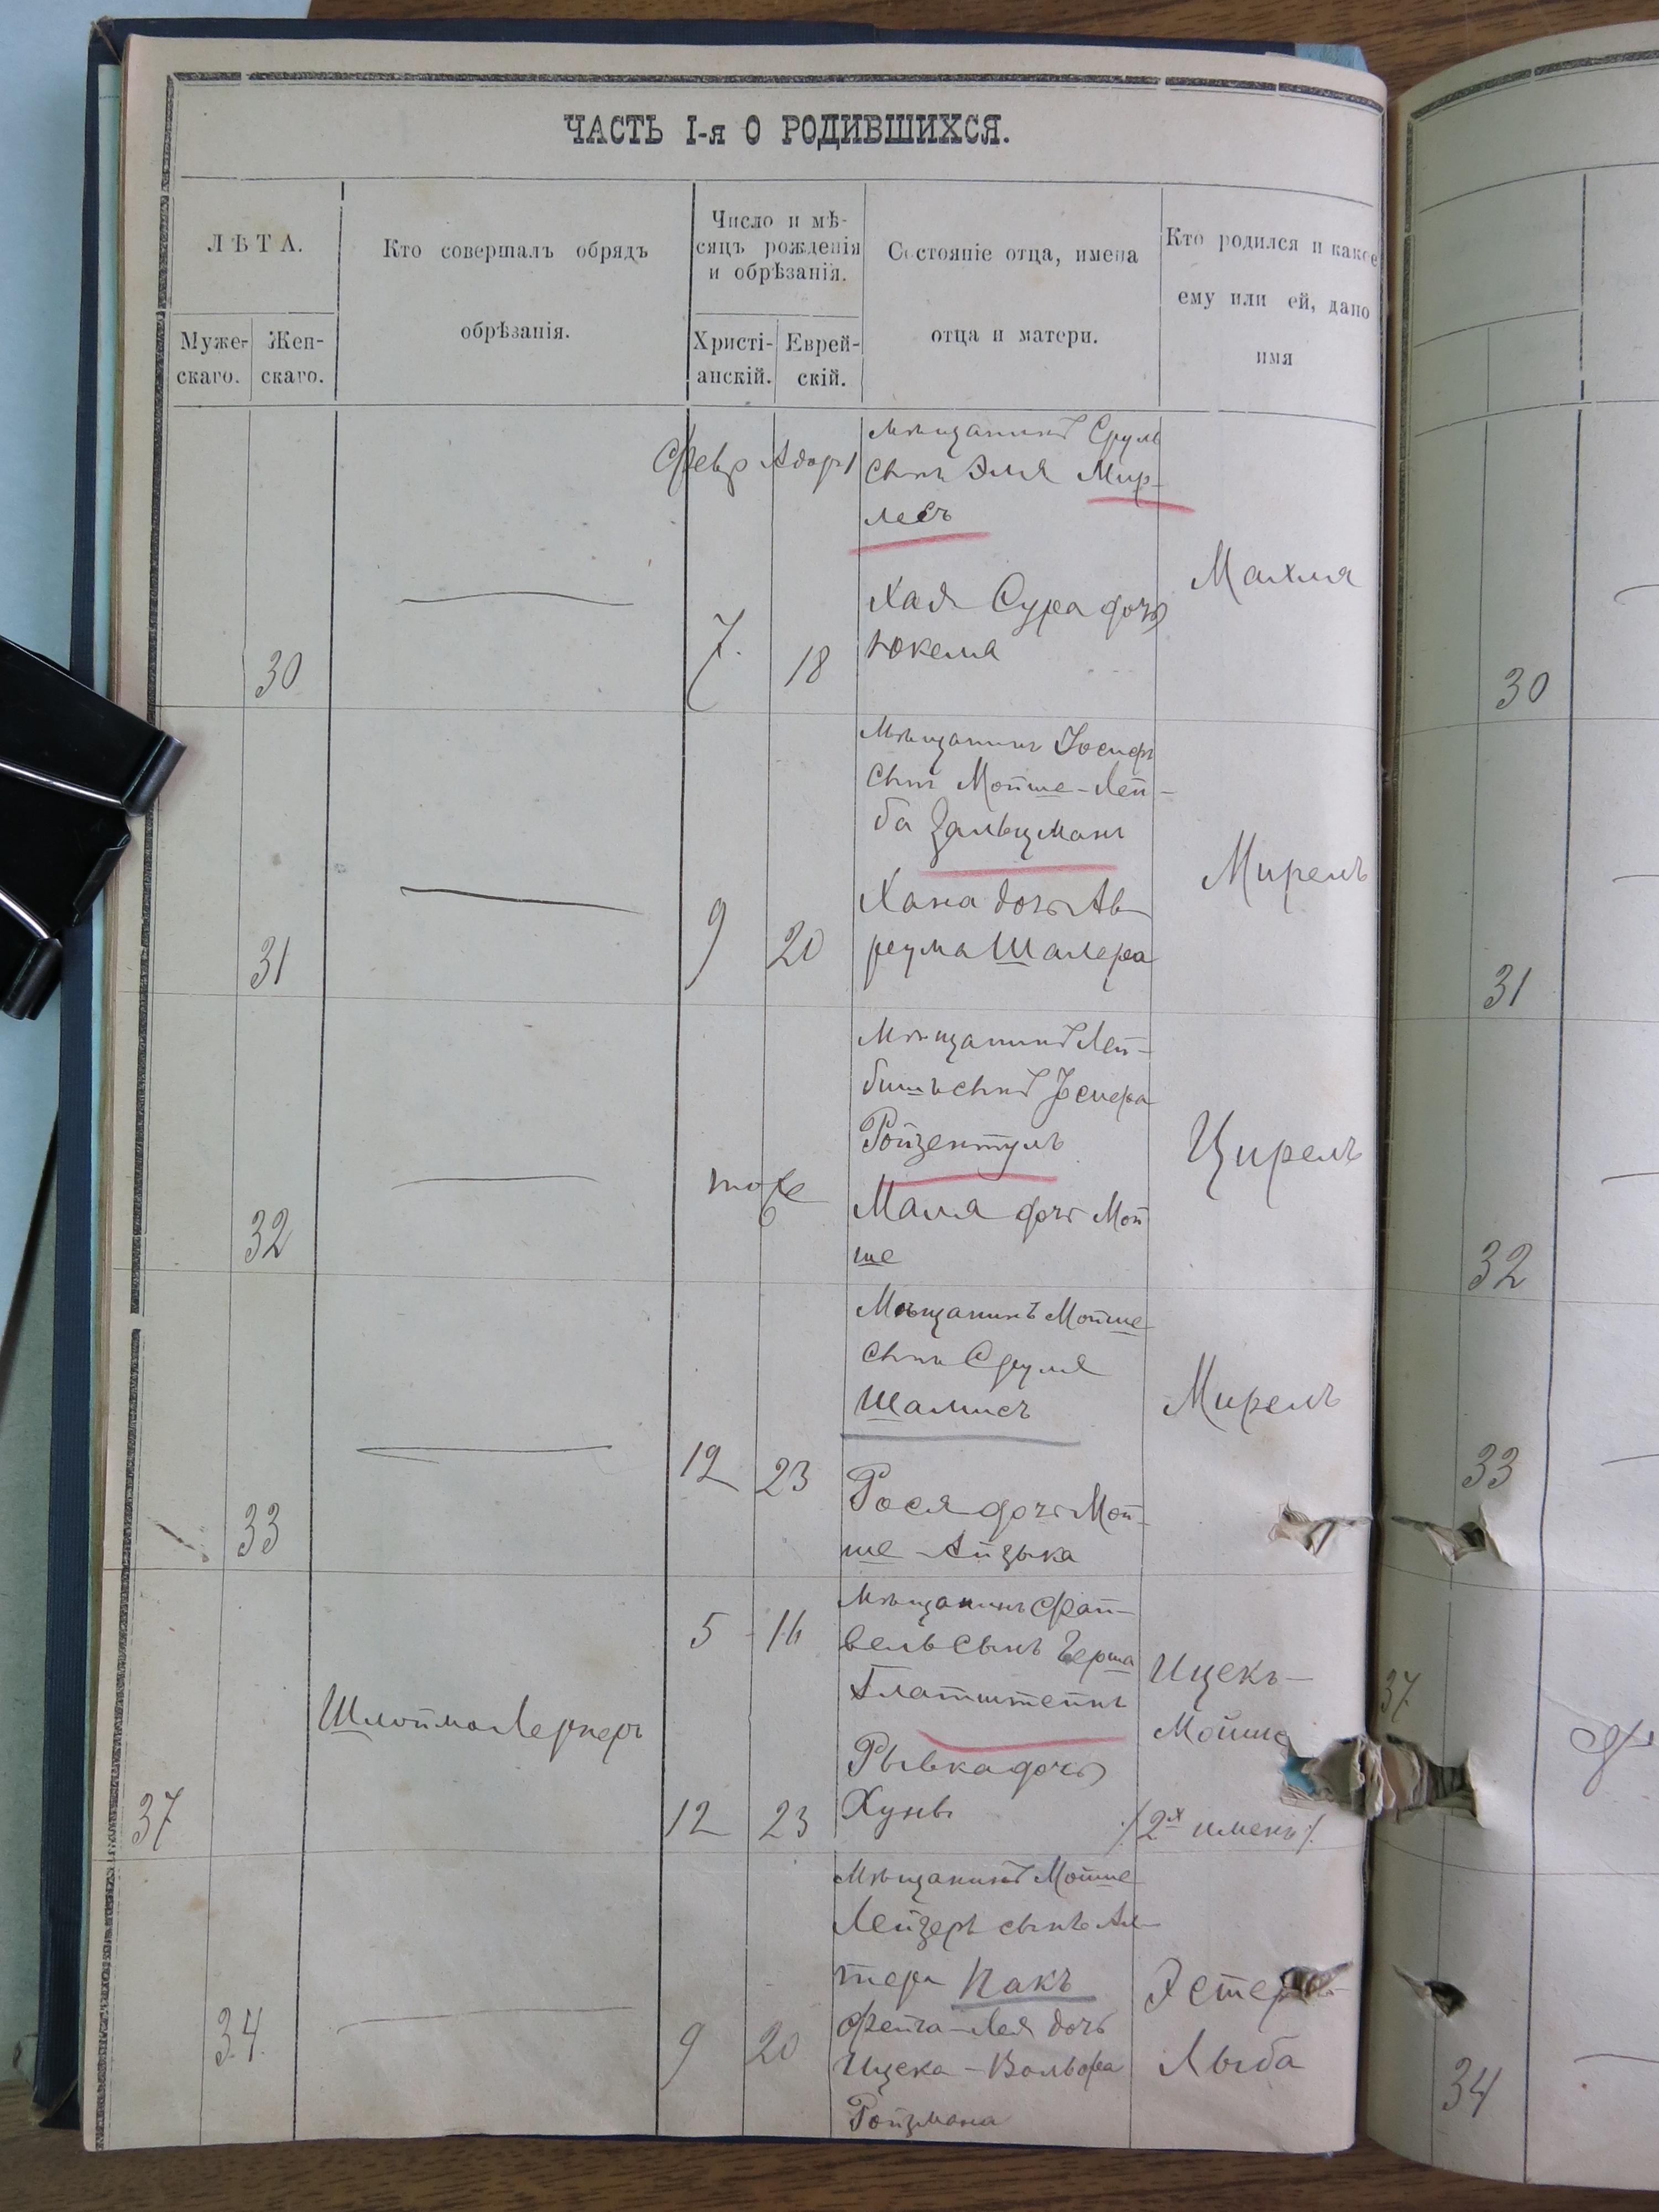 ЧАСТЬ I-я О РОДИВШИХСЯ.
ЛѢТА.
Мужескаго.
Женскаго.
Кто совершалъ обрядъ
обрѣзанія.
Число и мѣ-
сяцъ рожденія
и обрѣзанія.
Христі-
анскій.
Еврей-
скій.
Состояніе отца, имена
отца и матери.
Кто родился и какое
ему или ей, дано
имя
Февр Адарı
30
7.
18
Мѣщанинъ Сруль
сынъ Эля Мир-
лесъ
Хая Сура дочь
Юкелиа
Махля
30
31
9
20
Мѣщанинъ Іосифъ
сынъ Мойше-Лей-
ба Зальцманъ
Хана дочь Ав-
реума Шалера
Мирель
31
32
тоже
Мѣщанинъ Лей-
бишъ сынъ Іосифа
Ройзентуль
Маля дочь Мой
ше
Цирель
32
33
12
23
Мѣщанинъ Мойше
сынъ Сруля
Шалисъ
Рося дочь Мой-
ше-Айзыка
Мирель
33
37
Шлойма Лернеръ
5
16
12
23
Мѣщанинъ Фай-
вель сынъ Герша
Глатштейнъ
Рывка дочь
Хуны
Ицекъ-
Мойше
/2х именъ/.
37
34.
9
20
Мѣщанинъ Мойше
Лейзеръ сынъ Аль-
тера Пакъ
Фейга-Лея дочь
Ицека-Вольфа
Ройзмана
Эстеръ
Лыба
34